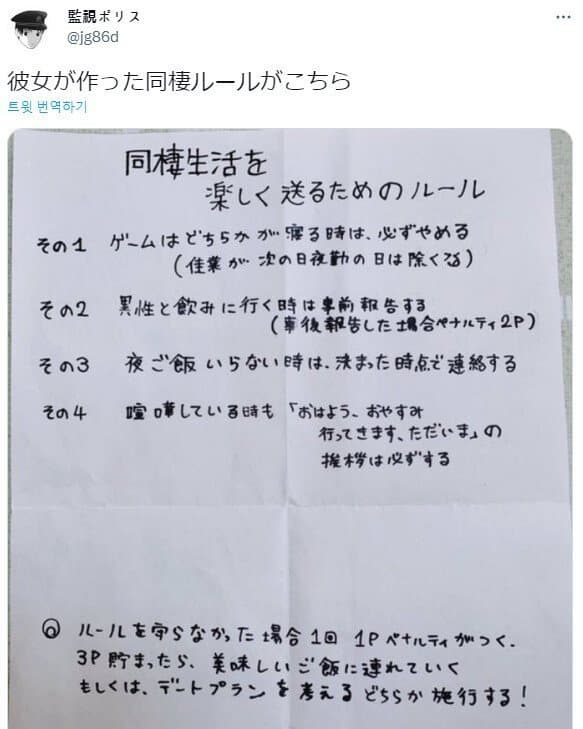 監視ポリス
@jg86d
彼女が作った同棲ルールがこちら
트윗 번역하기
同棲生活を
楽しく送るためのルール
その1 ゲームはどちらかが寝る時は、必ずやめる
(佳業が次の日夜勤の日は除くな)
その2 異性と飲みに行く時は事前報告する
(事後報告した場合ペナルティ2P)
その3 夜ご飯いらない時は、決まった時点で連絡する
その4 喧嘩している時も「おはよう、おやすみ
行ってきます、ただいま」の
挨拶は必ずする
ルールを守らなかった場合1回 1Pペナルティがつく.
3P貯まったら、美味しいご飯に連れていく
もしくは、デートプランを考えるどちらか施行する!